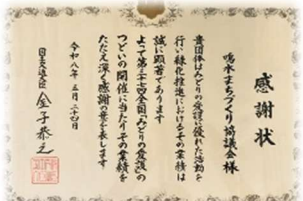 感謝状
鳴水まちづくり協議会様
貴団体はみどりの愛護に優れた活動を
行い緑化推進におけるその業績は
誠に顕著であります
よって第三十六回全国「みどりの愛護」の
つどいの開催に当たりその業績を
たたえ深く感謝の意を表します
令和八年 五月 二十四日
国土交通大臣 金子恭之